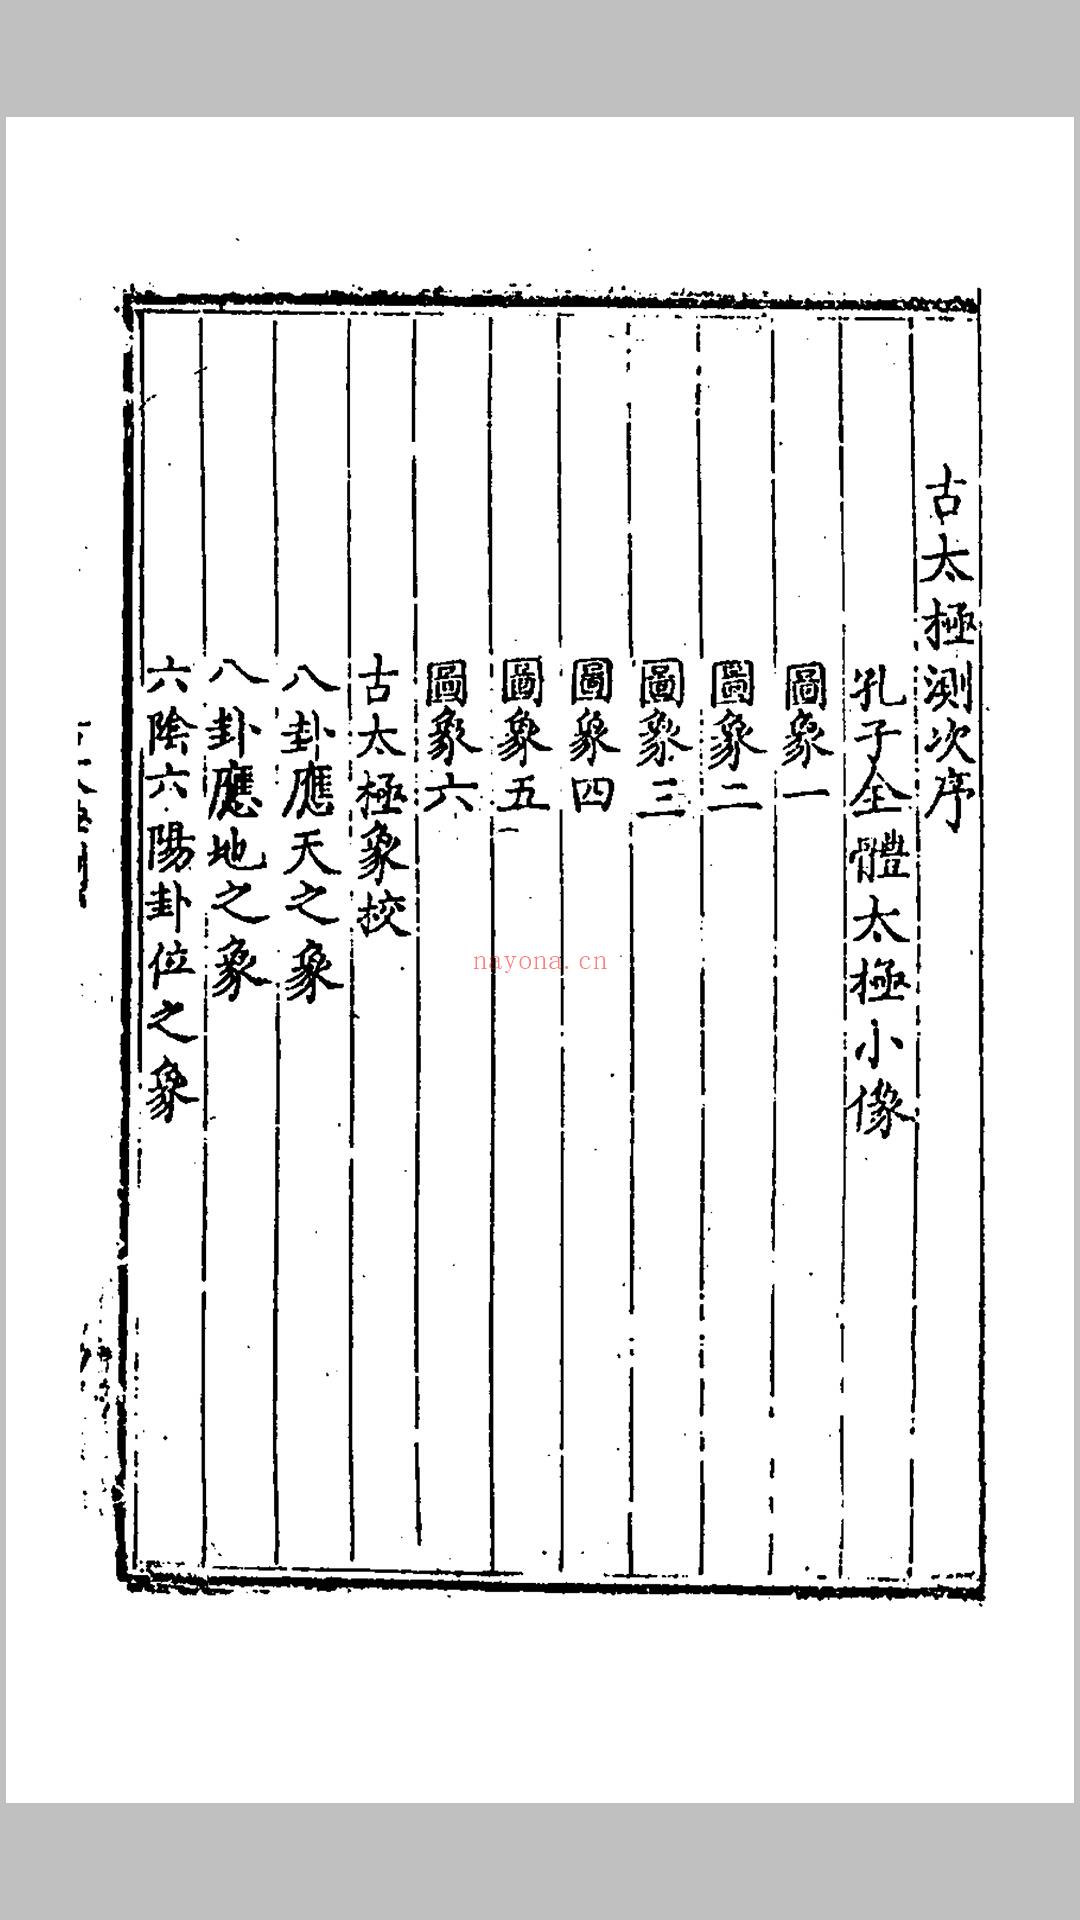 古太極測次序
孔子全體太極小像
圖象一
圖象二
圖象三
圖象四
圖象五
圖象六
古太極象挍
八卦應天之象
八卦應地之象
六陰六陽卦位之象
nayona.cn